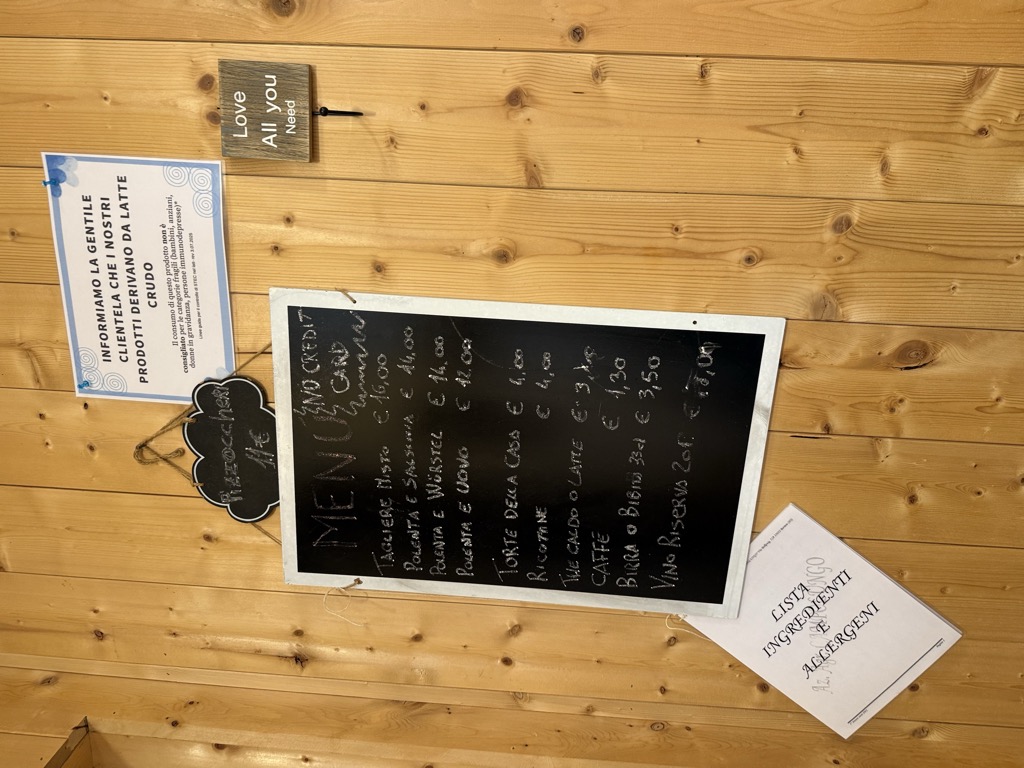 Love
All you
Need
INFORMIAMO LA GENTILE
CLIENTELA CHE I NOSTRI
PRODOTTI DERIVANO DA LATTE
CRUDO
Il consumo di questo prodotto non è
consigliato per le categorie fragili (bambini, anziani,
donne in gravidanza, persone immunodepresse)*
PIZZOCCHERI
11€
MENU
NO CREDIT
CARD
TAGLIERE MISTO € 16,00
POLENTA E SALSICCIA € 14,00
POLENTA E WÜRSTEL € 14,00
POLENTA E UOVO € 12,00
TORTE DELLA CASA € 4,00
RICOTTINE € 4,00
THE CALDO O LATTE €
CAFFÈ € 1,30
BIRRA O BIBITA 33cl € 3,50
VINO RISERVA 20lt €
LISTA
INGREDIENTI
E
ALLERGENI